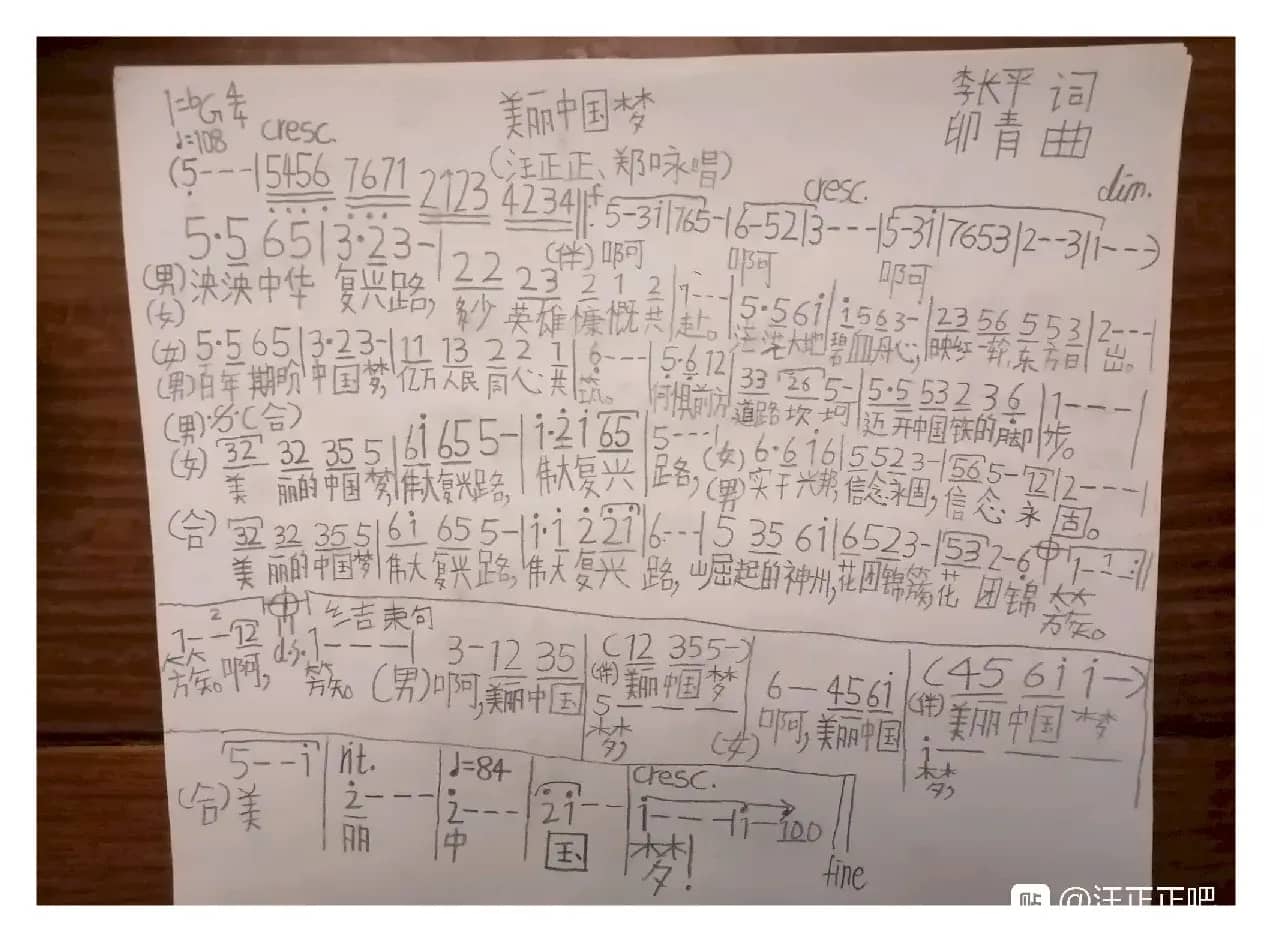 1=bG 4/4 美丽中国梦 李长平 词
♩=108 cresc. 印青 曲
(汪正正、郑咏唱) cresc. dim.
(5---|5456 7671 2123 4234‖f 5-3i|765-|6-52|3---|5-3i|7653|2--3|1---)
(伴)啊 啊 啊
5·5 65|3·23-|22 23 2 1 2|7---|5·56i|i563-|23 56 5 53|2---|
(男)泱泱中华 复兴路,多少 英雄慷慨共赴。茫茫大地碧血丹心,映红一轮东方日出。
(女)
(女)5·5 65|3·23-|11 13 2 2 1|6---|5·6 12|33 26 5-|5·5 53 2 3 6|1---|
(男)百年期阶 中国梦,亿万人民同心共筑。何惧前方道路坎坷 迈开中国铁的脚步。
(男)·𝄋·(合)
(女)32 32 35 5|6i 65 5-|i·2 i 65|5---|6·6 i6|5523-|56 5-12|2---|
美丽的中国梦,伟大复兴路,伟大复兴路,(女)(男)实干兴邦,信念永固,信念永固。
(合)32 32 35 5|6i 65 5-|i·i 2 2i|6---|5 35 6i|6523-|53 2-6𝄌|1--1:‖
美丽的中国梦 伟大复兴路,伟大复兴路,崛起的神州,花团锦簇,花团锦簇。
1--12|𝄌 结束句
簇。啊, d.s. 1----| 3-12 35|(12 355-)| 6-456i|(45 6i i-)
簇。(男)啊,美丽中国 (伴)美丽中国梦 5——— 梦, (女)啊,美丽中国 (伴)美丽中国梦 i——— 梦,
5--i|rit. 2---|♩=84 2---|2i--|cresc. i---|i-100‖
(合)美丽中国梦!
fine
@汪正正吧